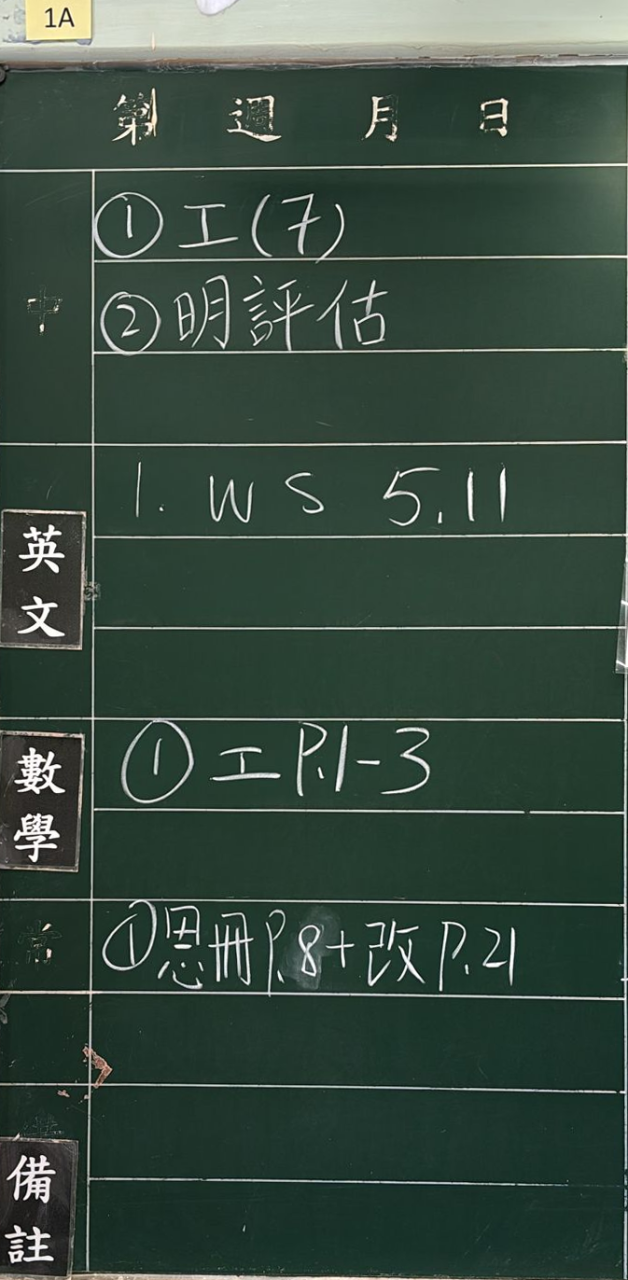 1A
第 週 月 日
中
① 工(7)
② 明評估
英文
1. WS 5.11
數學
① 工 P.1-3
常
① 恩冊 P.8+改 P.21
備註